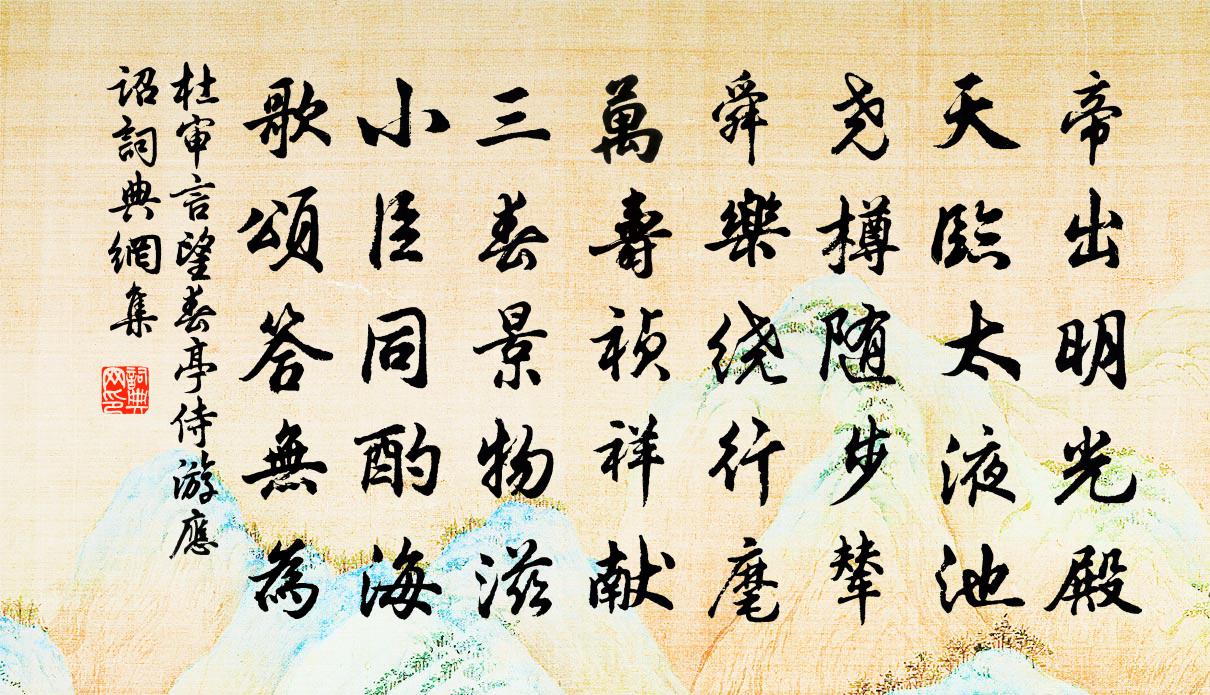 帝出明光殿
天臨太液池
尧樽随步輦
舜樂绕行麾
萬壽祯祥献
三春景物滋
小臣同酌海
歌頌答無為
杜审言望春亭侍游應
詔詞典網集
詞典
网印